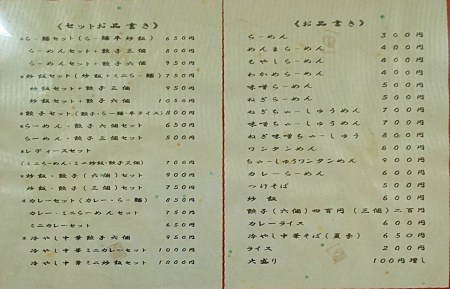 《セットお品書き》
らー麺セット(らー麺半炒飯) 650円
らーめんセット+餃子三個 800円
らーめんセット+餃子六個 950円
炒飯セット(炒飯+ミニらー麺) 750円
炒飯セット+餃子三個 950円
炒飯セット+餃子六個 1050円
餃子セット(餃子・らー麺・半ライス)
らーめん・餃子(六個)セット 650円
らーめん・餃子(三個)セット 500円
レディースセット
(ミニらーめん・ミニ炒飯・餃子三個) 700円
炒飯・餃子(六個)セット 900円
炒飯・餃子(三個)セット 750円
カレーセット(カレー・らー麺) 850円
カレー・ミニらーめんセット 750円
ミニカレーセット 650円
冷やし中華餃子六個 950円
冷やし中華ミニカレーセット 1000円
冷やし中華ミニ炒飯セット 1000円
《お品書き》
らーめん 300円
めんまらーめん 400円
もやしらーめん 400円
わかめらーめん 400円
味噌らーめん 500円
ねぎらーめん 500円
ねぎちゃーしゅうめん 700円
味噌ちゃーしゅうめん 700円
ねぎ味噌ちゃーしゅう 800円
ワンタンめん 600円
ちゃーしゅうワンタンめん 900円
カレーらーめん 600円
つけそば 500円
炒飯 600円
餃子(六個)四百円(三個)二百円
カレーライス 600円
冷やし中華そば(夏季) 650円
ライス 200円
大盛り 100円増し